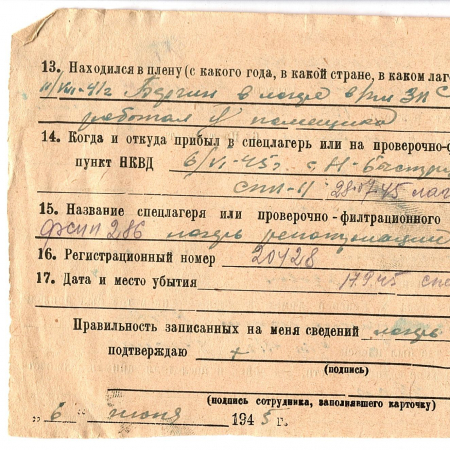 13. Находился в плену (с какого года, в какой стране, в каком лаг
11/VIII-41 г Бергин в лагере в/пл
работал у помещика
14. Когда и откуда прибыл в спецлагерь или на проверочно-ф
пункт НКВД 6/VI-45 г с Н-Быстри
28.07.45 лаг
15. Название спецлагеря или проверочно-фильтрационного
286 лагерь репатриации
16. Регистрационный номер 20428
17. Дата и место убытия 17.9.45 спе
Правильность записанных на меня сведений лагерь
подтверждаю +
(подпись)
(подпись сотрудника, заполнявшего карточку)
„ 6 „ июня 1945 г.